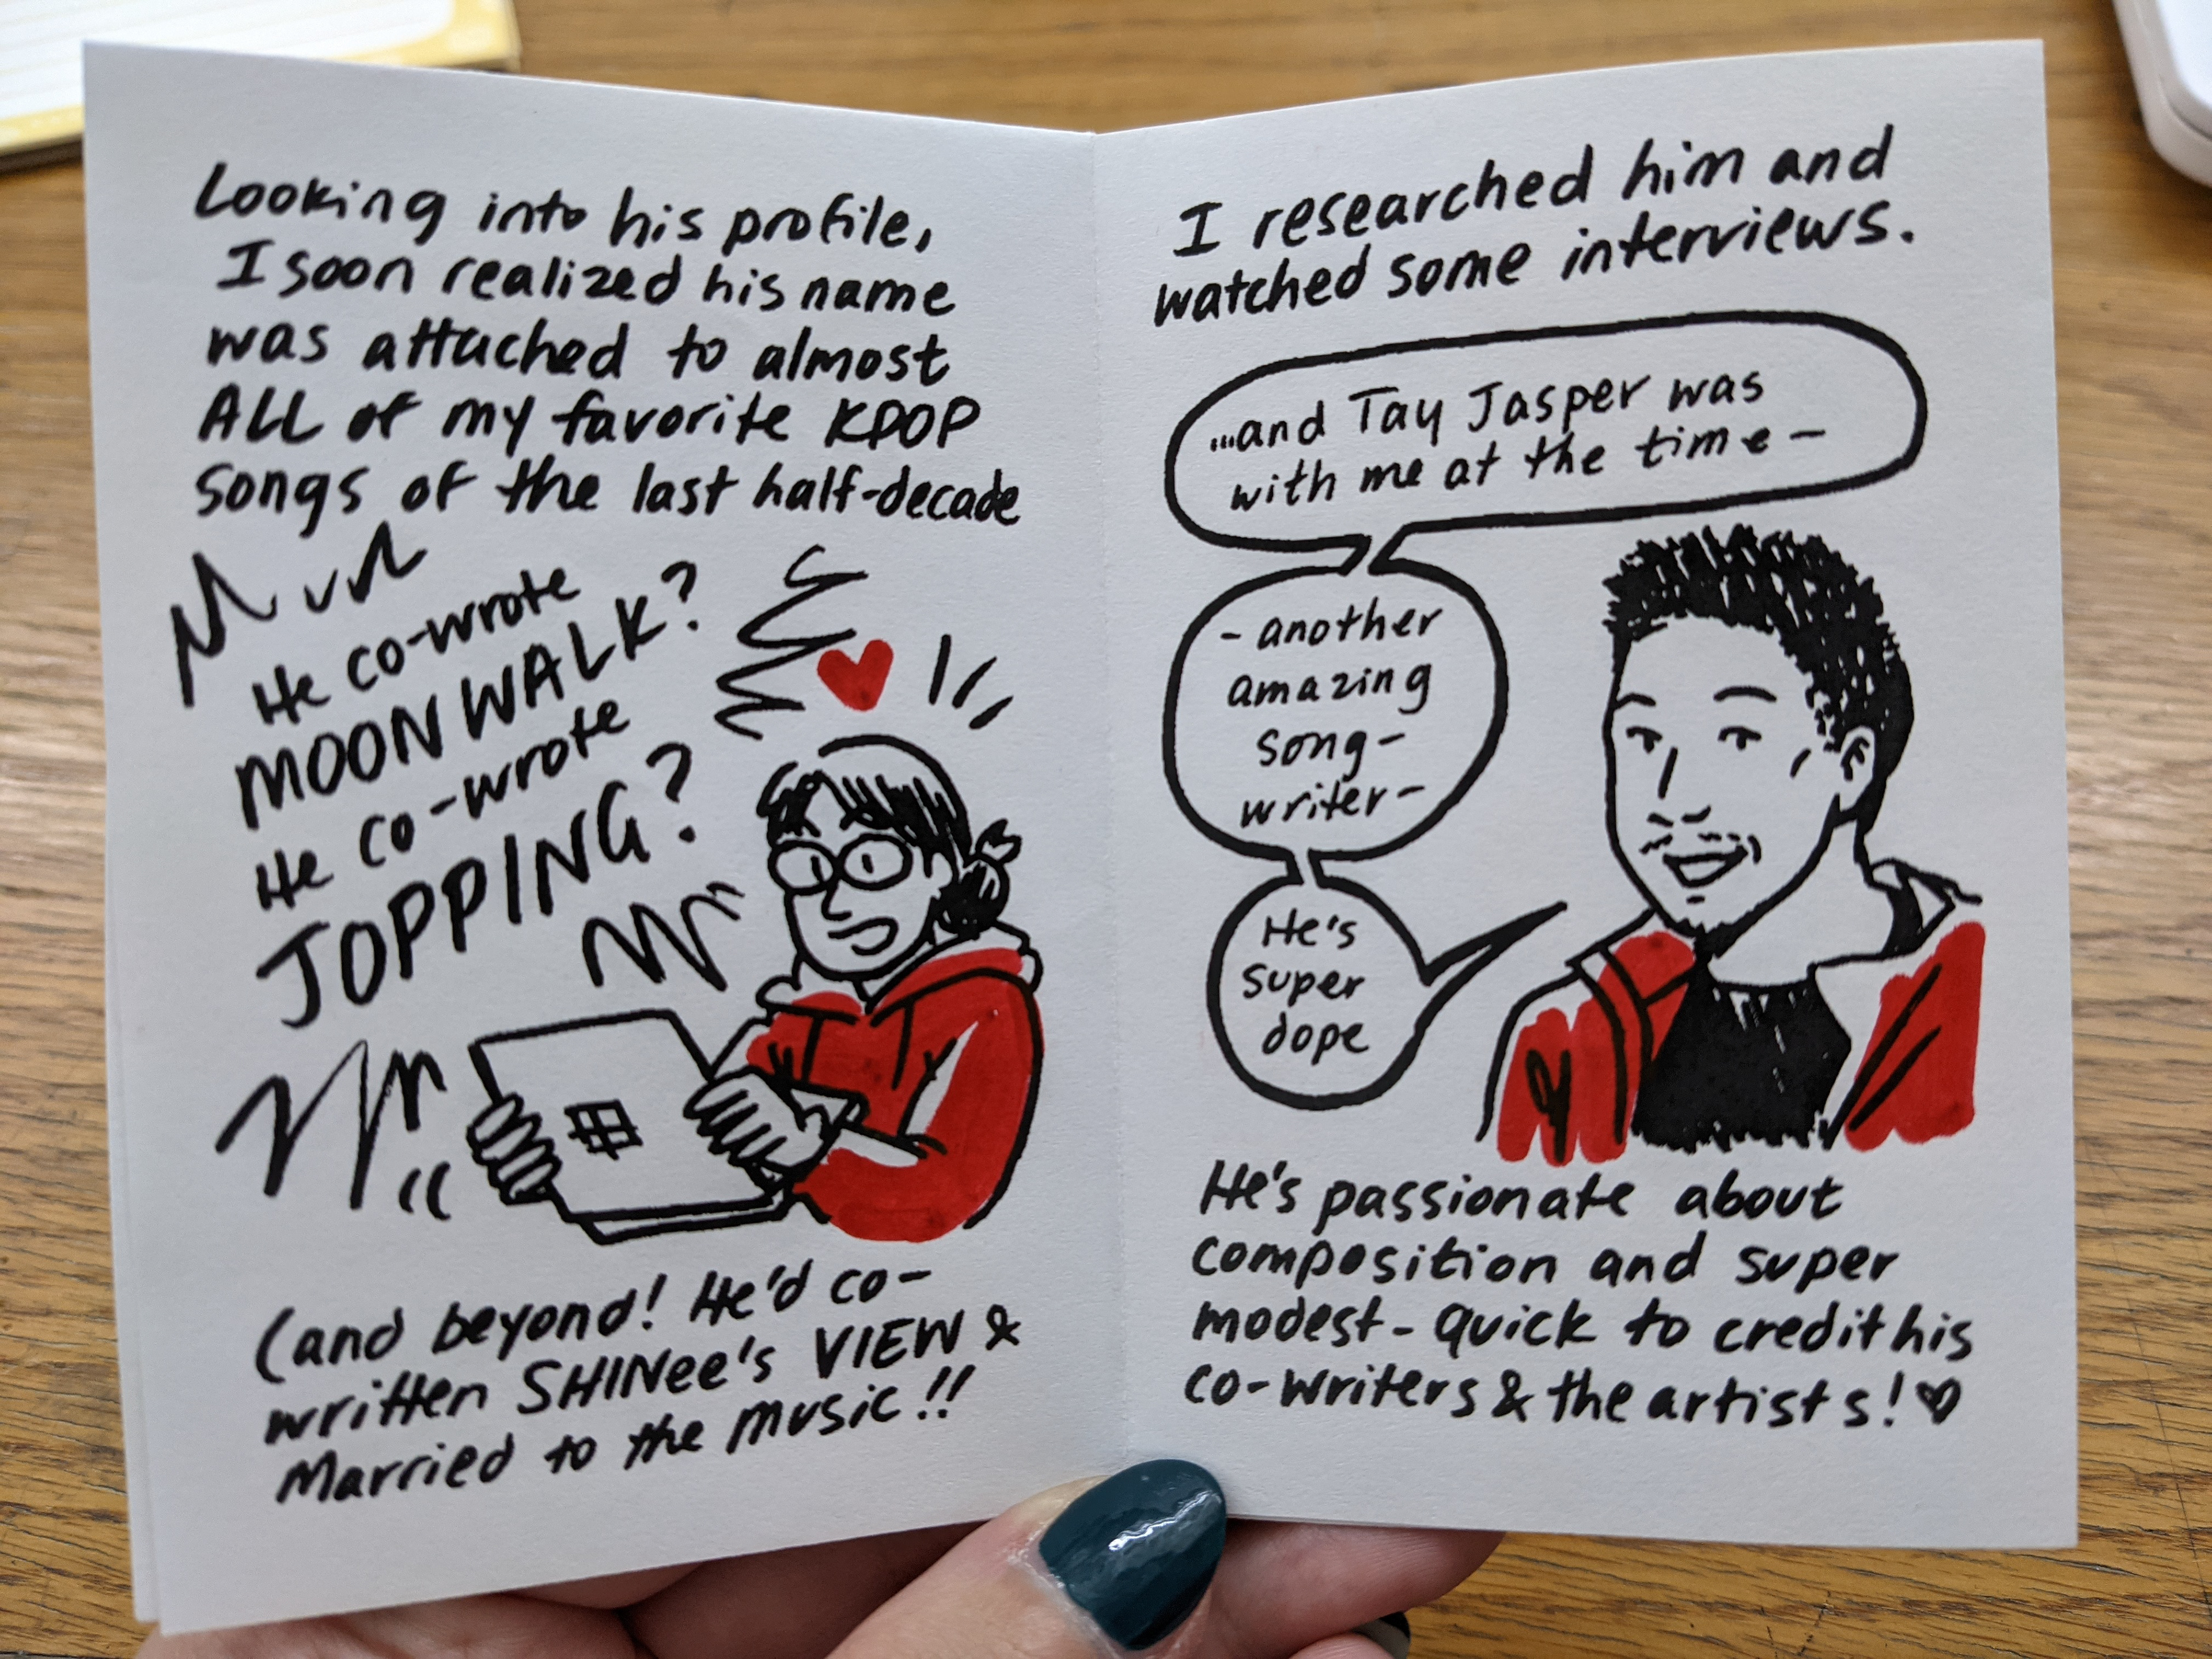 Looking into his profile,
I soon realized his name
was attached to almost
ALL of my favorite KPOP
songs of the last half-decade
He co-wrote
MOONWALK?
He co-wrote
JOPPING?
(and beyond! He'd co-
written SHINee's VIEW &
Married to the music!!
I researched him and
watched some interviews.
...and Tay Jasper was
with me at the time-
-another
amazing
song-
writer-
He's
super
dope
He's passionate about
composition and super
modest - quick to credit his
co-writers & the artists! ♡